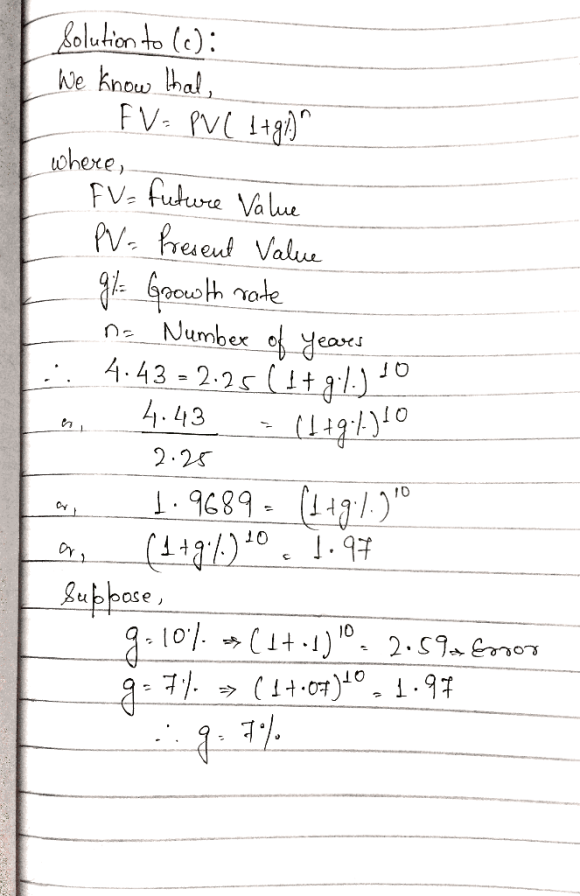 Solution to (c):
We know that,
FV = PV( 1+g%)^n
where,
FV= future Value
PV= Present Value
g%= Growth rate
n= Number of years
∴ 4.43 = 2.25 (1+g%)^10
or, 4.43 = (1+g%)^10
2.25
or, 1.9689 = (1+g%)^10
or, (1+g%)^10 = 1.97
Suppose,
g=10% ⇒ (1+.1)^10 = 2.59 ⇒ Error
g=7% ⇒ (1+.07)^10 = 1.97
∴ g= 7%